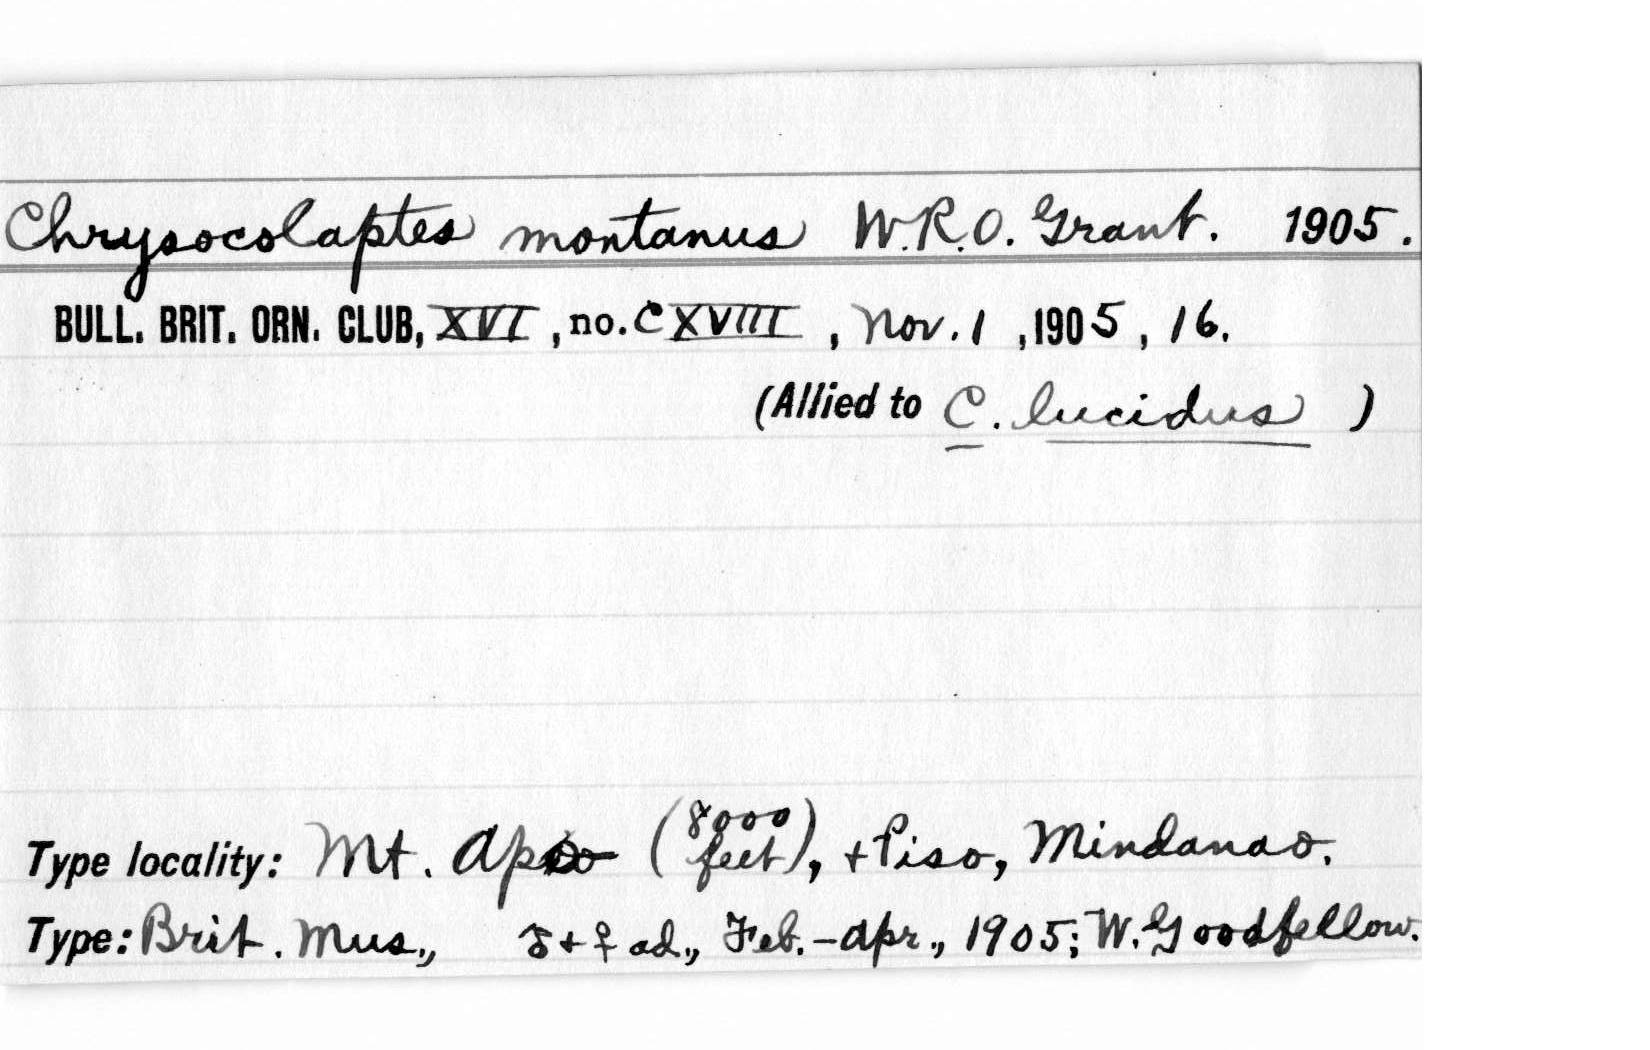 Chrysocolaptes montanus W.R.O. Grant. 1905.
BULL. BRIT. ORN. CLUB, XVI, no. CXVIII, Nov. 1, 1905, 16.
(Allied to C. lucidus)
Type locality: Mt. Apo (8000 feet), + Piso, Mindanao.
Type: Brit. Mus., ♂ + ♀ ad., Feb.-Apr., 1905; W. Goodfellow.